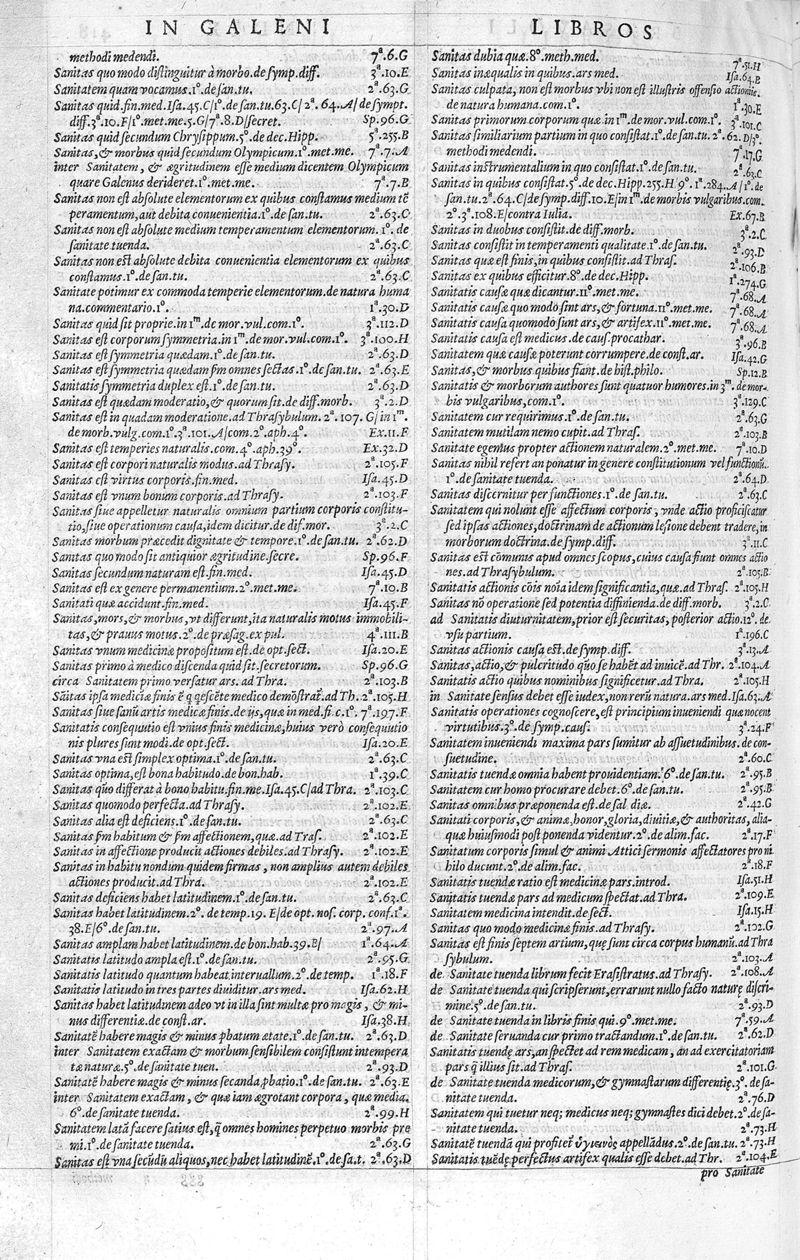 IN GALENI LIBROS
methodi medendi. 7ª.6.G
Sanitas quo modo distinguitur à morbo.de symp.diff. 3ª.10.E
Sanitatem quam vocamus.1º.de san.tu. 2ª.63.G
Sanitas quid.fin.med.Isa.45.C/1º.de san.tu.63.C/2ª.64.A/de sympt.
diff.3ª.10.F/1º.met.me.5.G/7ª.8.D/secret. Sp.96.G
Sanitas quid secundum Chrysippum.5º.de dec.Hipp. 5ª.255.B
Sanitas,& morbus quid secundum Olympicum.1º.met.me. 7ª.7.A
inter Sanitatem, & ægritudinem esse medium dicentem Olympicum
quare Galenus derideret.1º.met.me. 7ª.7.B
Sanitas non est absolute elementorum ex quibus constamus medium tē
peramentum,aut debita conuenientia.1º.de san.tu. 2ª.63.C
Sanitas non est absolute medium temperamentum elementorum.1º. de
sanitate tuenda. 2ª.63.C
Sanitas non est absolute debita conuenientia elementorum ex quibus
constamus.1º.de san.tu. 2ª.63.C
Sanitate potimur ex commoda temperie elementorum.de natura huma
na.commentario.1º. 1ª.30.D
Sanitas quid sit proprie.in 1ᵐ.de mor.vul.com.1º. 3ª.112.D
Sanitas est corporum symmetria.in 1ᵐ.de mor.vul.com.1º. 3ª.100.H
Sanitas est symmetria quædam.1º.de san.tu. 2ª.63.D
Sanitas est symmetria quædam ꝑm omnes sectas.1º.de san.tu. 2ª.63.E
Sanitatis symmetria duplex est.1º.de san.tu. 2ª.63.D
Sanitas est quædam moderatio,& quorum sit.de diff.morb. 3ª.2.D
Sanitas est in quadam moderatione.ad Thrasybulum.2ª.107.G/in 1ᵐ.
de morb.vulg.com.1º.3ª.101.A/com.2º.aph.4º. Ex.11.F
Sanitas est temperies naturalis.com.4º.aph.39º. Ex.32.D
Sanitas est corpori naturalis modus.ad Thrasy. 2ª.105.F
Sanitas est virtus corporis.fin.med. Isa.45.D
Sanitas est vnum bonum corporis.ad Thrasy. 2ª.103.F
Sanitas siue appelletur naturalis omnium partium corporis constitu-
tio,siue operationum causa,idem dicitur.de dif.mor. 3ª.2.C
Sanitas morbum præcedit dignitate & tempore.1º.de san.tu. 2ª.62.D
Sanitas quo modo sit antiquior ægritudine.secre. Sp.96.F
Sanitas secundum naturam est.fin.med. Isa.45.D
Sanitas est ex genere permanentium.2º.met.me. 7ª.10.B
Sanitati quæ accidunt.fin.med. Isa.45.F
Sanitas,mors,& morbus,vt differunt,ita naturalis motus immobili-
tas,& prauus motus.2º.de præsag.ex pul. 4ª.111.B
Sanitas vnum medicinæ propositum est.de opt.sect. Isa.20.E
Sanitas primo à medico discenda quid sit.secretorum. Sp.96.G
circa Sanitatem primo versatur ars.ad Thra. 2ª.103.B
Sāitas ipsa mediciæ finis ē q̃ gescēte medico demōstrat̃.ad Th. 2ª.105.H
Sanitas siue sanū artis medicæ finis.de ijs,quæ in med.fi c.1º. 7ª.197.F
Sanitatis consequutio est vnius finis medicinæ,huius verò consequutio
nis plures sunt modi.de opt.sect. Isa.20.E
Sanitas vna est simplex optima.1º.de san.tu. 2ª.63.C
Sanitas optima,est bona habitudo.de bon.hab. 1ª.39.C
Sanitas quō differat à bono habitu.fin.me.Isa.45.C/ad Thra. 2ª.103.C
Sanitas quomodo perfecta.ad Thrasy. 2ª.102.E
Sanitas alia est deficiens.1º.de san.tu. 2ª.63.C
Sanitas ꝑm habitum & ꝑm affectionem,quæ.ad Tras. 2ª.102.E
Sanitas in affectione producit actiones debiles.ad Thrasy. 2ª.102.E
Sanitas in habitu nondum quidem firmas, non amplius autem debiles
actiones producit.ad Thra. 2ª.102.E
Sanitas deficiens habet latitudinem.1º.de san.tu. 2ª.63.C
Sanitas habet latitudinem.2º. de temp.19.E/de opt.nos.corp.conf.1ª.
38.E/6º.de san.tu. 2ª.97.A
Sanitas amplam habet latitudinem.de bon.hab.39.E/ 1ª.64.A
Sanitatis latitudo ampla est.1º.de san.tu. 2ª.95.G
Sanitatis latitudo quantum habeat interuallum.2º.de temp. 1ª.18.F
Sanitatis latitudo in tres partes diuiditur.ars med. Isa.62.H
Sanitas habet latitudinem adeo vt in illa sint multæ pro magis, & mi-
nus differentiæ.de const.ar. Isa.38.H
Sanitatē habere magis & minus ꝓbatum ætate.1º.de san.tu. 2ª.63.D
inter Sanitatem exactam & morbum sensibilem consistunt intempera
tæ naturæ.5º.de sanitate tuen. 2ª.93.D
Sanitatē habere magis & minus secanda ꝓbatio.1º.de san.tu. 2ª.63.E
inter Sanitatem exactam, & quæ iam ægrotant corpora, quæ media.
6º.de sanitate tuenda. 2ª.99.H
Sanitatem latā facere satius est,q̃ omnes homines perpetuo morbis pre
mi.1º.de sanitate tuenda. 2ª.63.G
Sanitas est vna secūdū aliquos,nec habet latitudinē.1º.de sa.t. 2ª.63.D
Sanitas dubia quæ.8º.meth.med. 7ª.51.H
Sanitas inæqualis in quibus.ars med. Isa.64.B
Sanitas culpata, non est morbus vbi non est illustris offensio actionis.
de natura humana.com.1º. 1ª.30.E
Sanitas primorum corporum quæ in 1ᵐ.de mor.vul.com.1º. 3ª.101.C
Sanitas similiarium partium in quo consistat.1º.de san.tu. 2ª.62.D/3º.
methodi medendi. 7ª.17.G
Sanitas instrumentalium in quo consistat.1º.de san.tu. 2ª.63.C
Sanitas in quibus consistat.5º.de dec.Hipp.255.H/9º.1ª.284.A/1º.de
san.tu.2ª.64.C/de symp.diff.10.E/in 1ᵐ.de morbis vulgaribus.com.
2º.3ª.108.E/contra Iulia. Ex.67.B
Sanitas in duobus consistit.de diff.morb. 3ª.2.C
Sanitas consistit in temperamenti qualitate.1º.de san.tu. 2ª.93.D
Sanitas quæ est finis,in quibus consistit.ad Thras. 2ª.106.B
Sanitas ex quibus efficitur.8º.de dec.Hipp. 1ª.274.G
Sanitatis causæ quæ dicantur.11º.met.me. 7ª.68.A
Sanitatis causæ quo modo sint ars,& fortuna.11º.met.me. 7ª.68.A
Sanitatis causa quomodo sunt ars,& artifex.11º.met.me. 7ª.68.A
Sanitatis causa est medicus.de caus.procathar. 3ª.96.B
Sanitatem quæ causæ poterunt corrumpere.de const.ar. Isa.42.G
Sanitas,& morbus quibus fiant.de hist.philo. Sp.12.B
Sanitatis & morborum authores sunt quatuor humores.in 3ᵐ.de mor-
bis vulgaribus,com.1º. 3ª.129.C
Sanitatem cur requirimus.1º.de san.tu. 2ª.63.G
Sanitatem mutilam nemo cupit.ad Thras. 2ª.103.B
Sanitate egemus propter actionem naturalem.2º.met.me. 7ª.10.D
Sanitas nihil refert an ponatur in genere constitutionum vel functionū.
1º.de sanitate tuenda. 2ª.64.D
Sanitas discernitur per functiones.1º.de san.tu. 2ª.63.C
Sanitatem qui nolunt esse affectum corporis, vnde actio proficiscatur
sed ipsas actiones,doctrinam de actionum lesione debent tradere,in
morborum doctrina.de symp.diff. 3ª.11.C
Sanitas est cōmunis apud omnes scopus,cuius causa fiunt omnes actio
nes.ad Thrasybulum. 2ª.105.B
Sanitatis actionis cōis noīa idem significantia,quæ.ad Thras. 2ª.105.H
Sanitas nō operatione sed potentia diffinienda.de diff.morb. 3ª.2.C
ad Sanitatis diuturnitatem,prior est securitas, posterior actio.12º.de
vsu partium. 1ª.196.C
Sanitas actionis causa est.de symp.diff. 3ª.13.A
Sanitas,actio,& pulcritudo quō se habēt ad inuicē.ad Thr. 2ª.104.A
Sanitatis actio quibus nominibus significetur.ad Thra. 2ª.105.H
in Sanitate sensus debet esse iudex,non rerū natura.ars med.Isa.63.A
Sanitatis operationes cognoscere,est principium inueniendi quæ nocent
virtutibus.3º.de symp.caus. 3ª.24.F
Sanitatem inueniendi maxima pars sumitur ab assuetudinibus.de con-
suetudine. 2ª.60.C
Sanitatis tuendæ omnia habent prouidentiam.6º.de san.tu. 2ª.95.B
Sanitatem cur homo procurare debet.6º.de san.tu. 2ª.95.B
Sanitas omnibus præponenda est.de sal diæ. 2ª.42.G
Sanitati corporis,& animæ,honor,gloria,diuitiæ,& authoritas, alia-
quæ huiusmodi post ponenda videntur.2º.de alim.fac. 2ª.17.F
Sanitatum corporis simul & animi Attici sermonis affectatores pro ni
hilo ducunt.2º.de alim.fac. 2ª.18.F
Sanitatis tuendæ ratio est medicinæ pars.introd. Isa.51.H
Sanitatis tuendæ pars ad medicum spectat.ad Thra. 2ª.109.E
Sanitatem medicina intendit.de sect. Isa.15.H
Sanitas quo modo medicinæ finis.ad Thrasy. 2ª.102.G
Sanitas est finis septem artium,que sunt circa corpus humanū.ad Thra
sybulum. 2ª.103.A
de Sanitate tuenda librum fecit Erasistratus.ad Thrasy. 2ª.108.A
de Sanitate tuenda qui scripserunt,errarunt nullo facto naturę discri-
mine.5º.de san.tu. 2ª.93.D
de Sanitate tuenda in libris finis qui.9º.met.me. 7ª.59.A
de Sanitate seruanda cur primo tractandum.1º.de san.tu. 2ª.62.D
Sanitatis tuendę ars,an spectet ad rem medicam, an ad exercitatoriam
pars q̃ illius sit.ad Thras. 2ª.101.G
de Sanitate tuenda medicorum,& gymnastarum differentię.3º.de sa-
nitate tuenda. 2ª.76.D
Sanitatem qui tuetur neq; medicus neq; gymnastes dici debet.2º.de sa-
nitate tuenda. 2ª.73.H
Sanitatē tuendā qui profitet̃ ὑγιεινὸς appellādus.2º.de san.tu. 2ª.73.H
Sanitatis tuēdę perfectus artifex qualis esse debet.ad Thr. 2ª.104.E
pro Sanitate